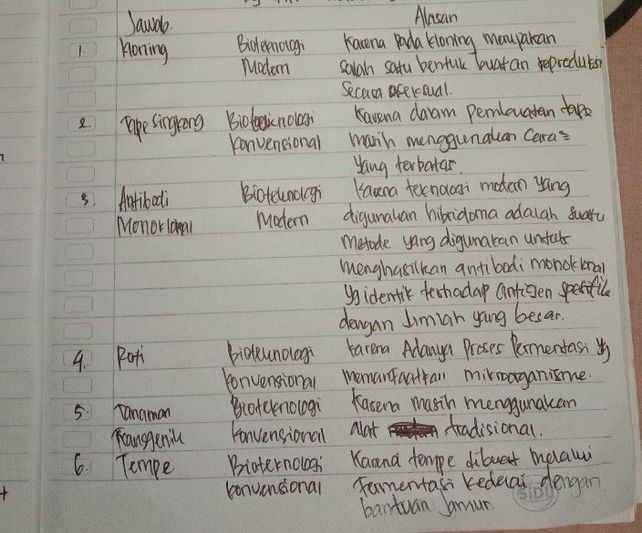 Jawab. Alasan
1. Kloning Bioteknologi Karena pada kloning merupakan
Modern salah satu bentuk buatan reproduksi
secara aseksual.
2. Tape singkong Bioteknologi Karena dalam pembuatan tape
konvensional masih menggunakan cara²
yang terbatas.
3. Antibodi Bioteknologi Karena teknologi modern yang
Monoklonal Modern digunakan hibridoma adalah suatu
metode yang digunakan untuk
menghasilkan antibodi monoklonal
yg identik terhadap antigen spesifik
dengan Jumlah yang besar.
4. Roti Bioteknologi karena Adanya Proses Fermentasi yg
konvensional memanfaatkan mikroorganisme.
5. Tanaman Bioteknologi Karena masih menggunakan
Transgenik konvensional alat tradisional.
6. Tempe Bioteknologi Karena tempe dibuat melalui
konvensional Fermentasi kedelai dengan
bantuan Jamur.
SIDU